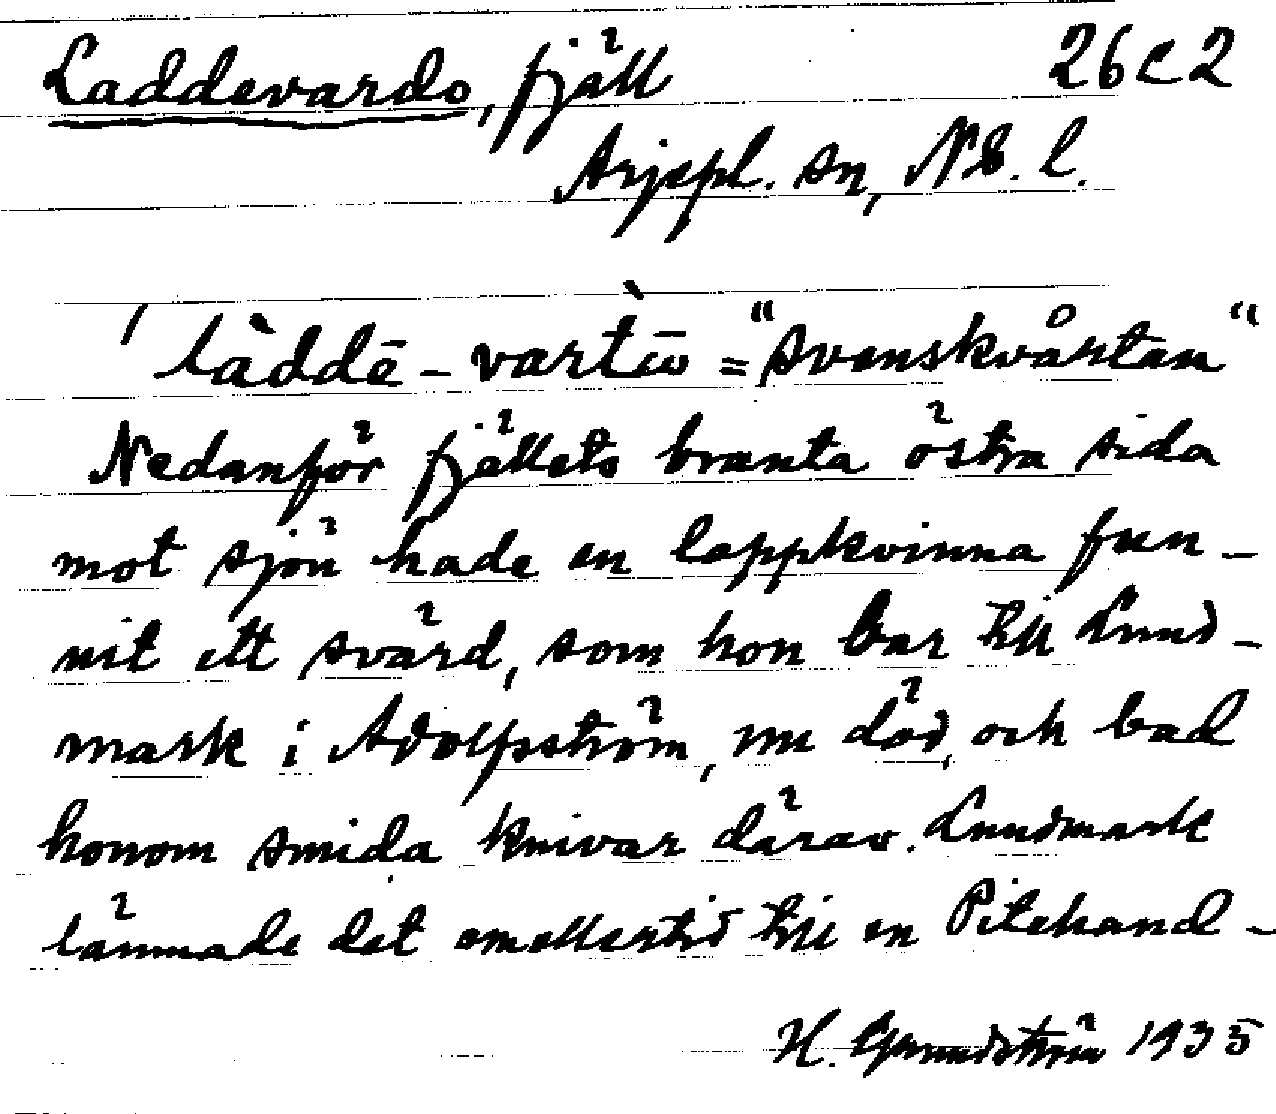 Laddevardo, fjäll 26 C 2
Arjepl. sn, Nb. l.
' làddē - vart̀ēu̯ = "Svenskvårtan"
Nedanför fjällets branta östra sida
mot sjön hade en lappkvinna fun-
nit ett svärd, som hon bar till Lund-
mark i Adolfsström, nu död, och bad
honom smida knivar därav. Lundmark
lämnade det emellertid till en Pitehand-
H. Grundström 1935